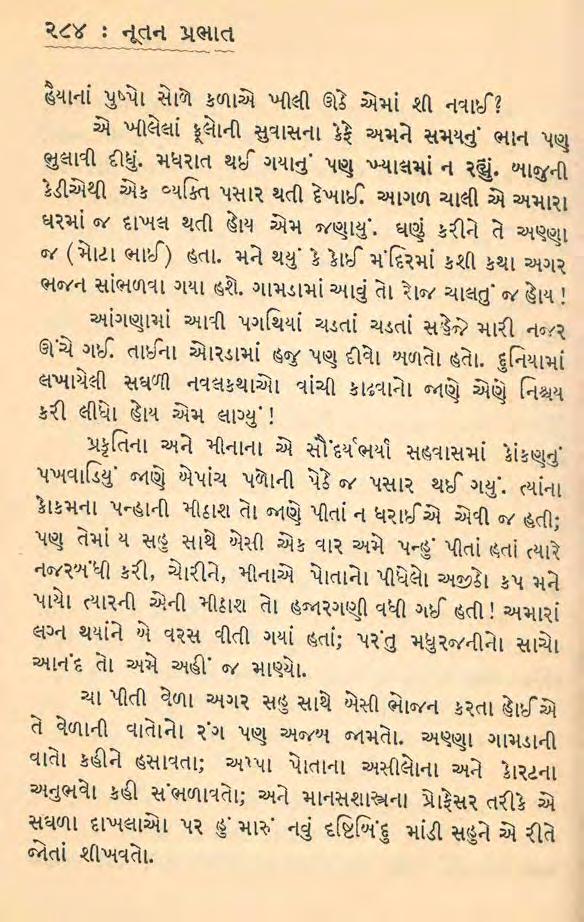 ૨૮૪ : નૂતન પ્રભાત
હૈયાનાં પુષ્પો સોળે કળાએ ખીલી ઊઠે એમાં શી નવાઈ?
એ ખીલેલાં ફૂલોની સુવાસના કેફે અમને સમયનું ભાન પણ
ભુલાવી દીધું. મધરાત થઈ ગયાનું પણ ખ્યાલમાં ન રહ્યું. બાજુની
કેડીએથી એક વ્યક્તિ પસાર થતી દેખાઈ. આગળ ચાલી એ અમારા
ઘરમાં જ દાખલ થતી હોય એમ જણાયું. ઘણું કરીને તે અણ્ણા
જ (મોટા ભાઈ) હતા. મને થયું કે કોઈ મંદિરમાં કશી કથા અગર
ભજન સાંભળવા ગયા હશે. ગામડામાં આવું તો રોજ ચાલતું જ હોય!
આંગણામાં આવી પગથિયાં ચડતાં ચડતાં સહેજે મારી નજર
ઊંચે ગઈ. તાઈના ઓરડામાં હજુ પણ દીવો બળતો હતો. દુનિયામાં
લખાયેલી સઘળી નવલકથાઓ વાંચી કાઢવાનો જાણે એણે નિશ્ચય
કરી લીધો હોય એમ લાગ્યું!
પ્રકૃતિના અને મીનાના એ સૌંદર્યભર્યા સહવાસમાં કોંકણનું
પખવાડિયું જાણે બેપાંચ પળોની પેઠે જ પસાર થઈ ગયું. ત્યાંના
કોકમના પન્હાની મીઠાશ તો જાણે પીતાં ન ધરાઈએ એવી જ હતી;
પણ તેમાં ય સહુ સાથે બેસી એક વાર અમે પન્હું પીતાં હતાં ત્યારે
નજરબંધી કરી, ચોરીને, મીનાએ પોતાનો પીધેલો અજીઠો કપ મને
પાયો ત્યારની એની મીઠાશ તો હજારગણી વધી ગઈ હતી! અમારાં
લગ્ન થયાંને બે વરસ વીતી ગયાં હતાં; પરંતુ મધુરજનીનો સાચો
આનંદ તો અમે અહીં જ માણ્યો.
ચા પીતી વેળા અગર સહુ સાથે બેસી ભોજન કરતા હોઈએ
તે વેળાની વાતોનો રંગ પણ અજબ જામતો. અણ્ણા ગામડાની
વાતો કહીને હસાવતા; અપ્પા પોતાના અસીલોના અને કોરટના
અનુભવો કહી સંભળાવતો; અને માનસશાસ્ત્રના પ્રોફેસર તરીકે એ
સઘળા દાખલાઓ પર હું મારું નવું દૃષ્ટિબિંદુ માંડી સહુને એ રીતે
જોતાં શીખવતો.